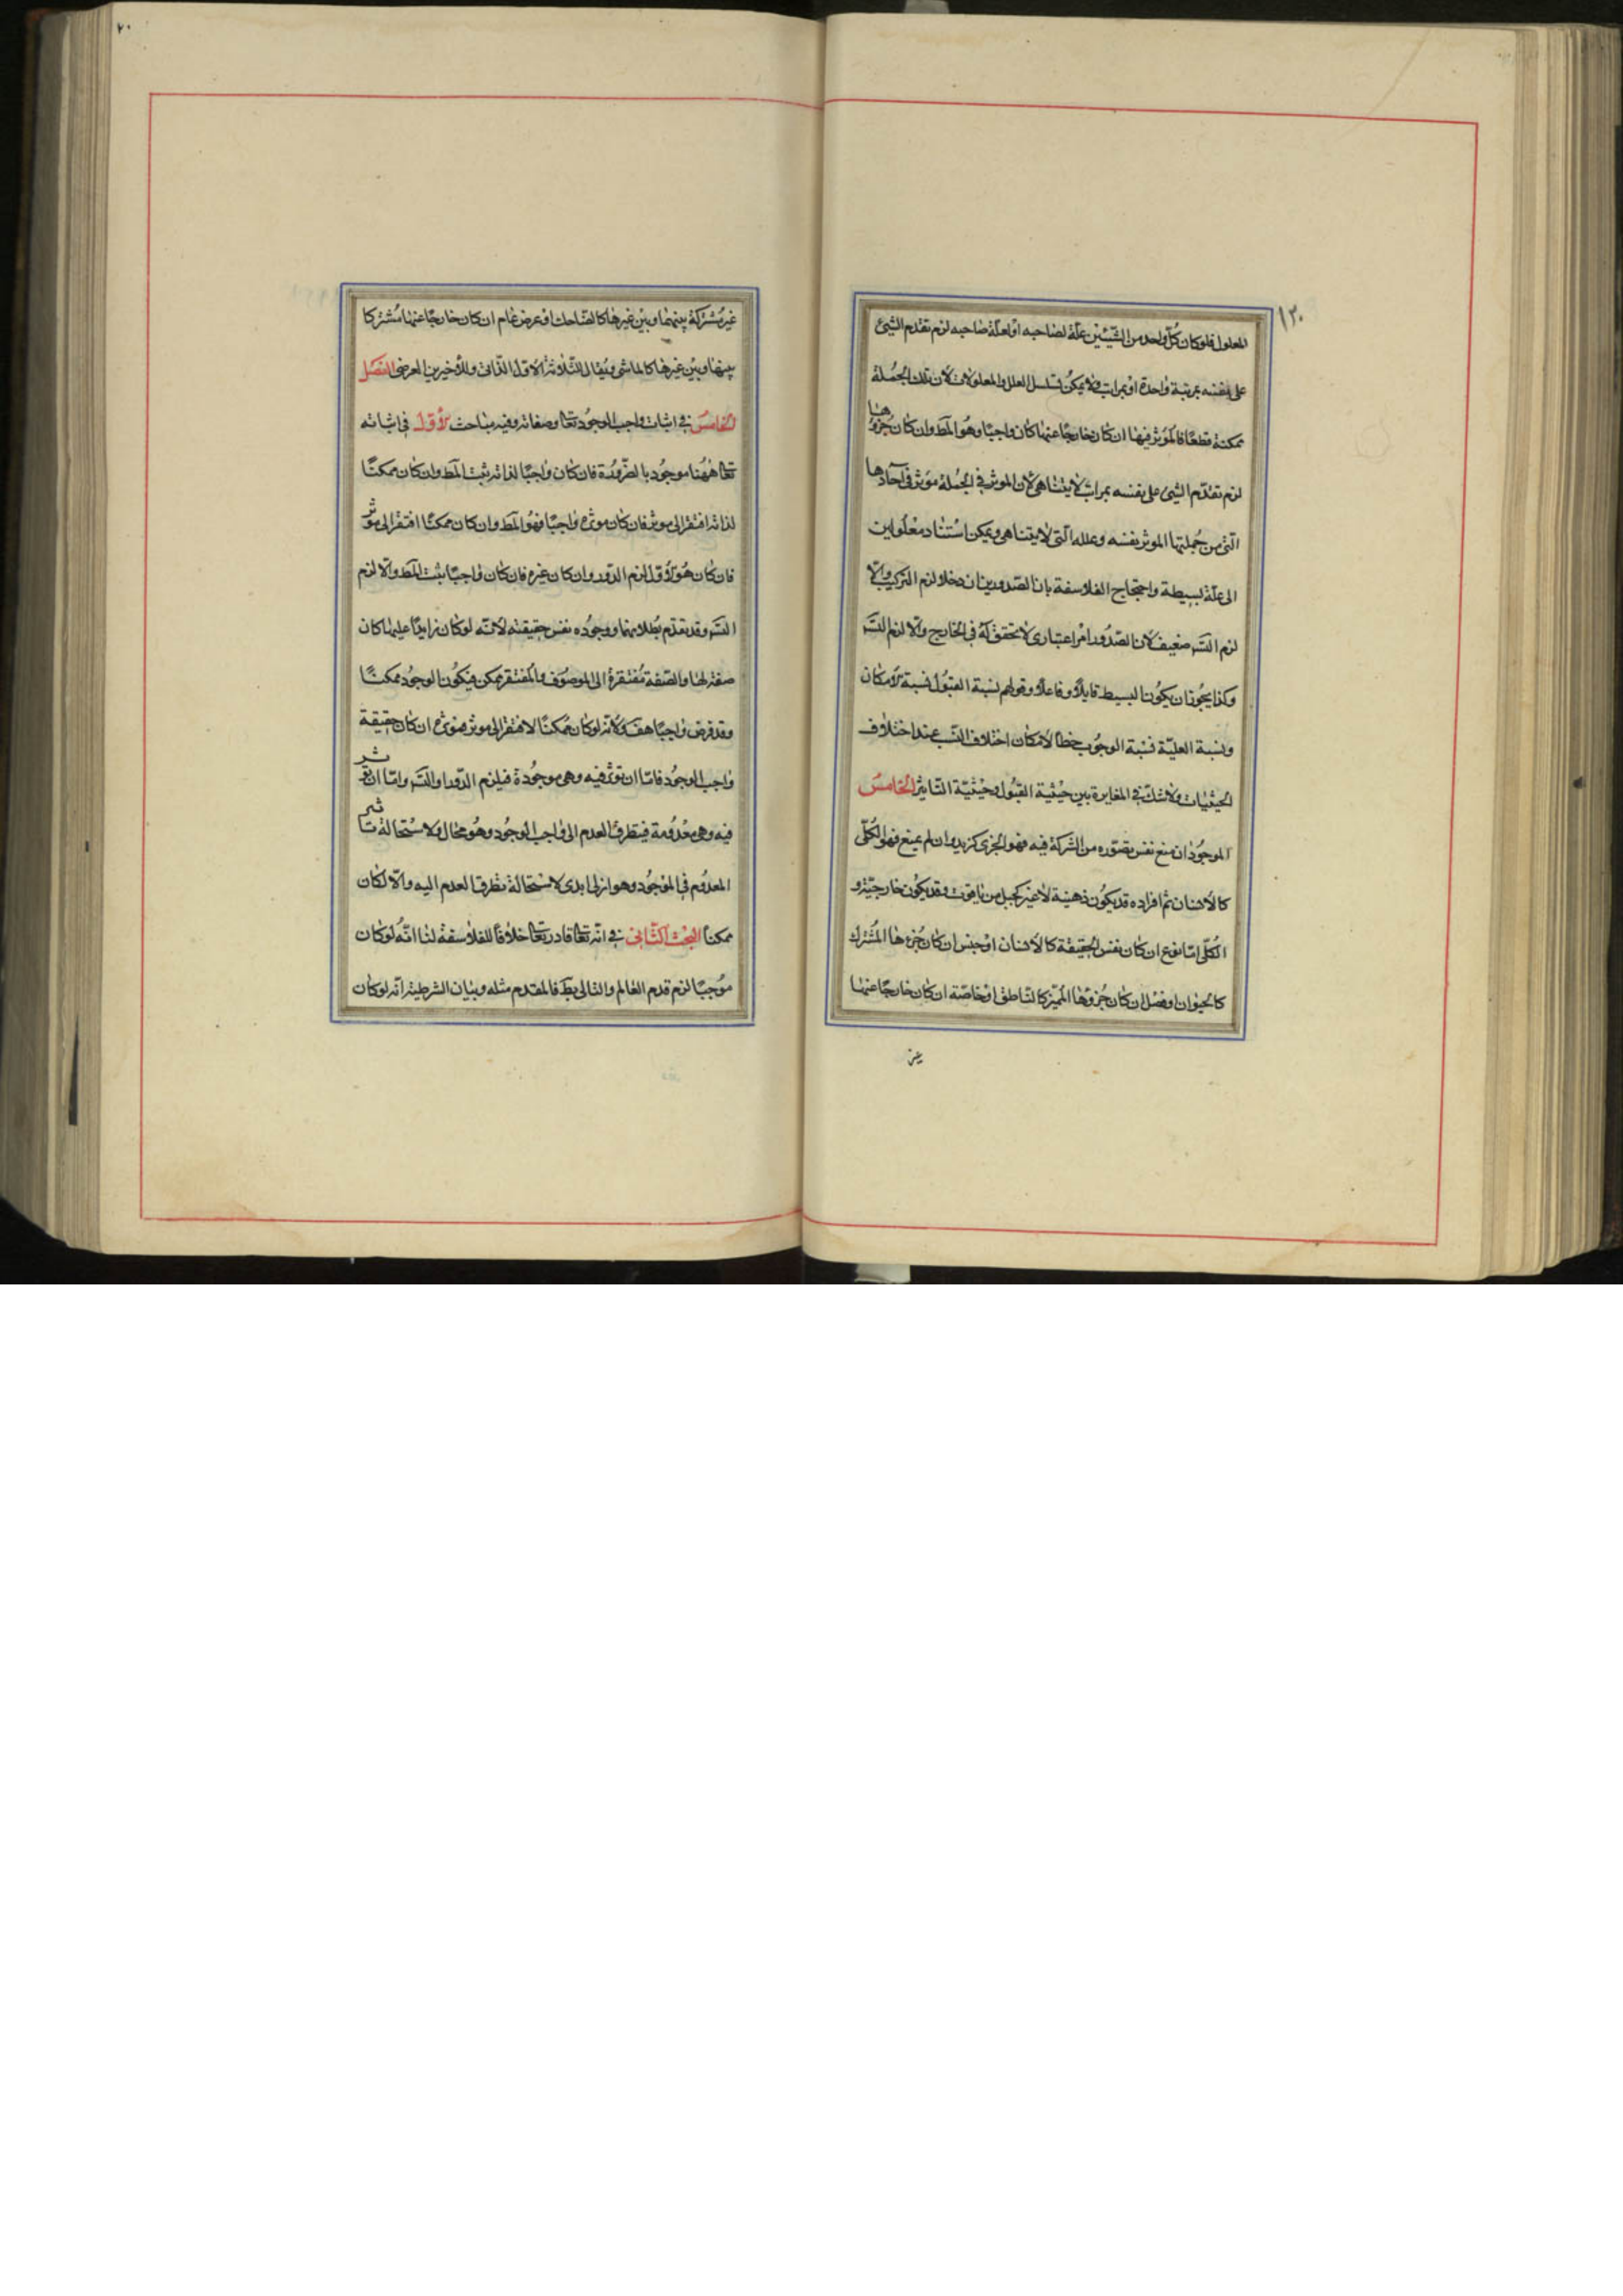 ١٣٠
المعلول فلو كان كل واحد من الشيئين علة لصاحبه او لعلة صاحبه لزم تقدم الشئ
على نفسه بمرتبة واحدة او بمراتب ولا يمكن تسلسل العلل والمعلولات لان تلك الجملة
ممكنة قطعا فالموثر فيها ان كان خارجا عنها كان واجبا وهو المط وان كان جزوها
لزم تقدم الشئ على نفسه بمراتب لا يتناهى لان الموثر في الجملة موثر في آحادها
التي من جملتها الموثر نفسه وعلله التي لا يتناهى ويمكن استناد معلولين
الى علة بسيطة واحتجاج الفلاسفة بان الصدورين ان دخلا لزم التركيب والا
لزم التسـ ضعيف لان الصدور امر اعتبارى لا تحقق له في الخارج والا لزم التسـ
وكذا يجوز ان يكون البسيط قابلا وفاعلا وقولهم نسبة القبول نسبة الامكان
ونسبة العلية نسبة الوجوب خطا لامكان اختلاف النسب عند اختلاف
الحيثيات ولا شك في المغايرة بين حيثية القبول وحيثية التاثير الخامس
الموجود ان منع نفس تصوره من الشركة فيه فهو الجزى كزيد وان لم يمنع فهو الكلى
كالانسان ثم افراده قد يكون ذهنية لا غير كجبل من ياقوت وقد يكون خارجية و
الكلى اما نوع ان كان نفس الحقيقة كالانسان او جنس ان كان جزءها المشترك
كالحيوان او فصل ان كان جزوها المميز كالناطق او خاصة ان كان خارجا عنها
غير
٢٠
غير مشتركة بينها وبين غيرها كالضاحك او عرض عام ان كان خارجا عنها مشتركا
بينها وبين غيرها كالماشى ويقال للثلاثة الاول الذاتى وللأخيرين العرضى الفصل
الخامس في اثبات واجب الوجود تعا وصفاته وفيه مباحث الأول في اثباته
تعا ههنا موجود بالضرورة فان كان واجبا لذاته ثبت المط وان كان ممكنا
لذاته افتقر الى موثر فان كان موثره واجبا فهو المط وان كان ممكنا افتقر الى موثر
فان كان هو الاول لزم الدور وان كان غيره فان كان واجبا ثبت المط والا لزم
التسـ وقد تقدم بطلانهما ووجوده نفس حقيقته لانه لو كان زايدا عليها كان
صفة لها والصفة مفتقرة الى الموصوف والمفتقر ممكن فيكون الوجود ممكنا
وقد فرض واجبا هف ولانه لو كان ممكنا لافتقر الى موثر فموثره ان كان حقيقة
واجب الوجود فاما ان توثر فيه وهى موجودة فيلزم الدور او التسـ واما ان توثر
فيه وهى معدومة فيتطرق العدم الى واجب الوجود وهو محال ولاستحالة تاثير
المعدوم في الموجود وهو ازلى ابدى لاستحالة تطرق العدم اليه والا لكان
ممكنا البحث الثانى في انه تعا قادر تعا خلافا للفلاسفة لنا انه لو كان
موجبا لزم قدم العالم والتالى بط فالمقدم مثله وبيان الشرطية انه لو كان